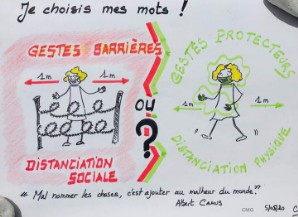 Je choisis mes mots !
GESTES BARRIÈRES
1m 1m
DISTANCIATION
SOCIALE
OU
?
GESTES PROTECTEURS
1m 1m
DISTANCIATION PHYSIQUE
" Mal nommer les choses, c'est ajouter au malheur du monde."
Albert CAMUS